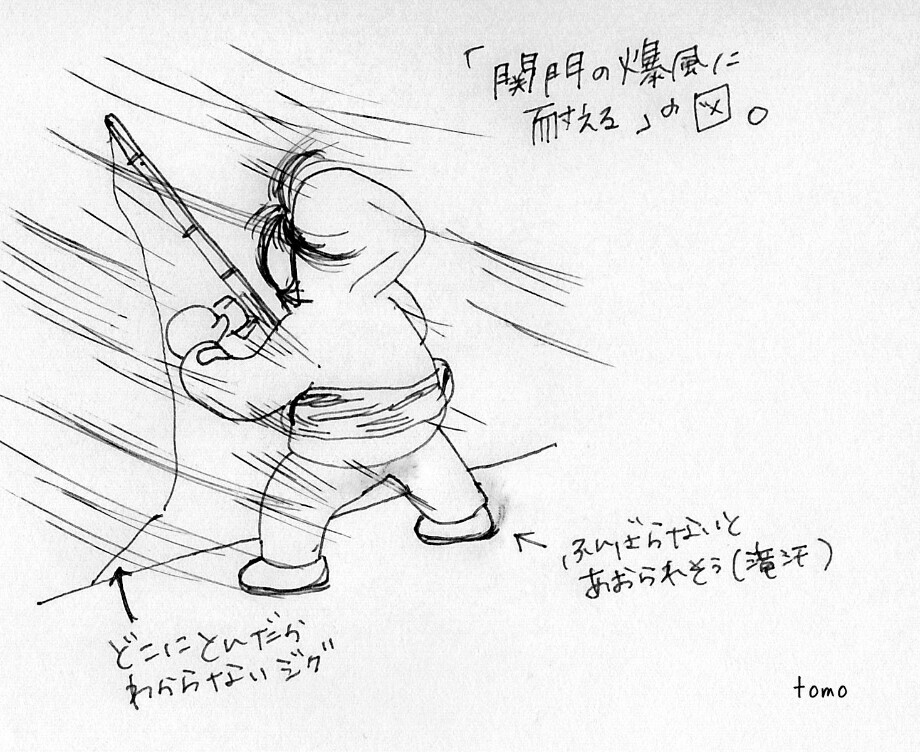 「関門の爆風に
耐える」の図。
ふんばらないと
あおられそう(滝汗)
どこにとんだか
わからないジグ
tomo